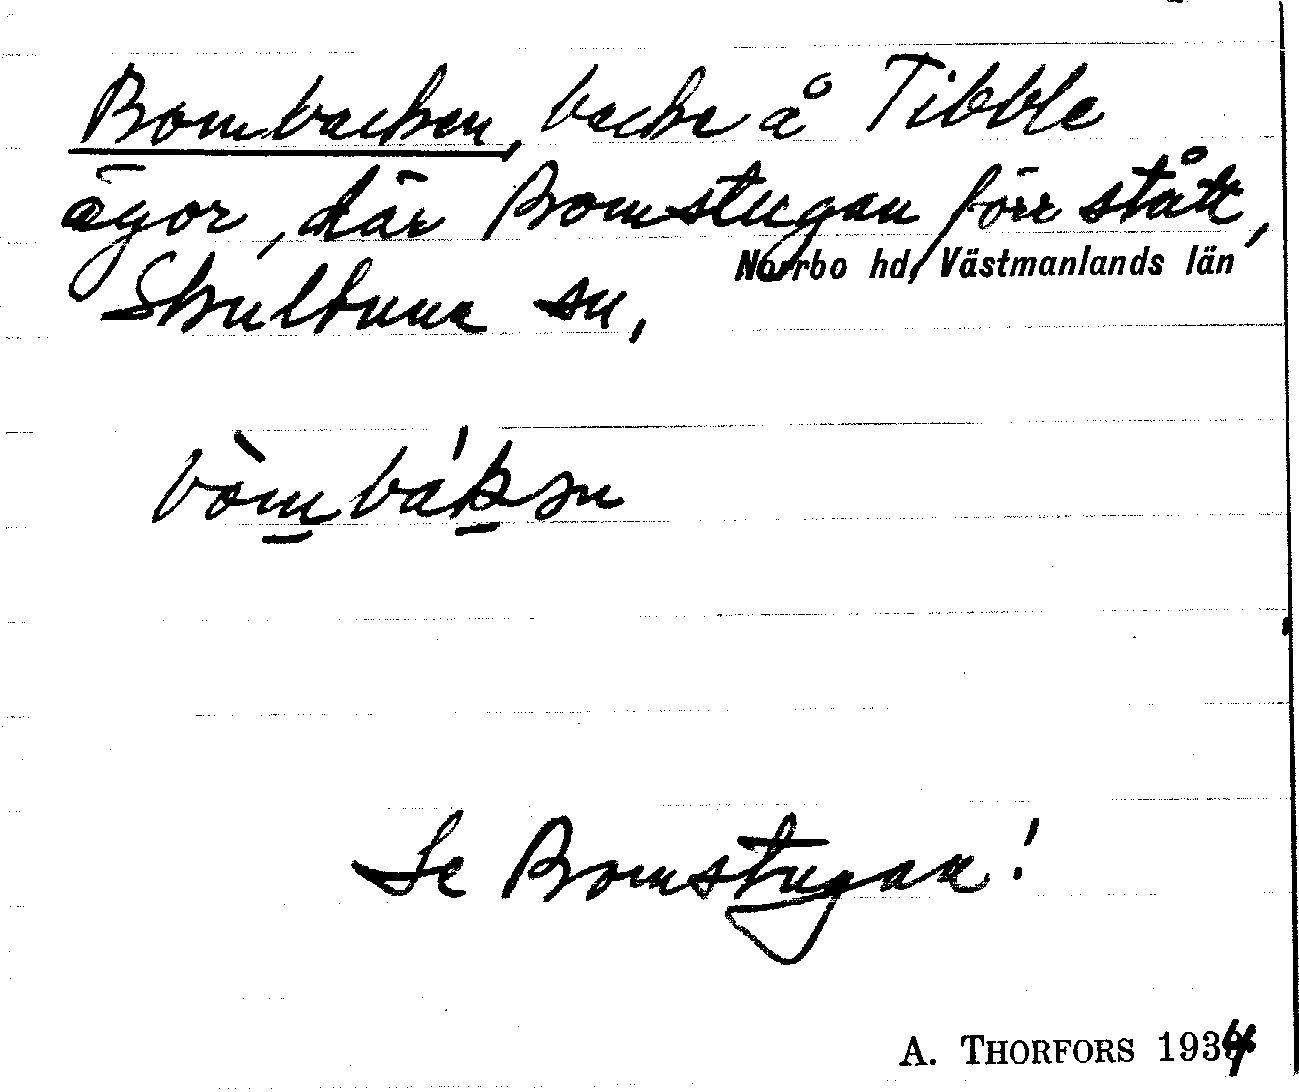 Bombacken, backe å Tibble
ägor, där Bomstugan förr stått,
Norrbo hd, Västmanlands län
Skultuna sn,
bòmbák̠ən
Se Bomstugan!
A. THORFORS 1934